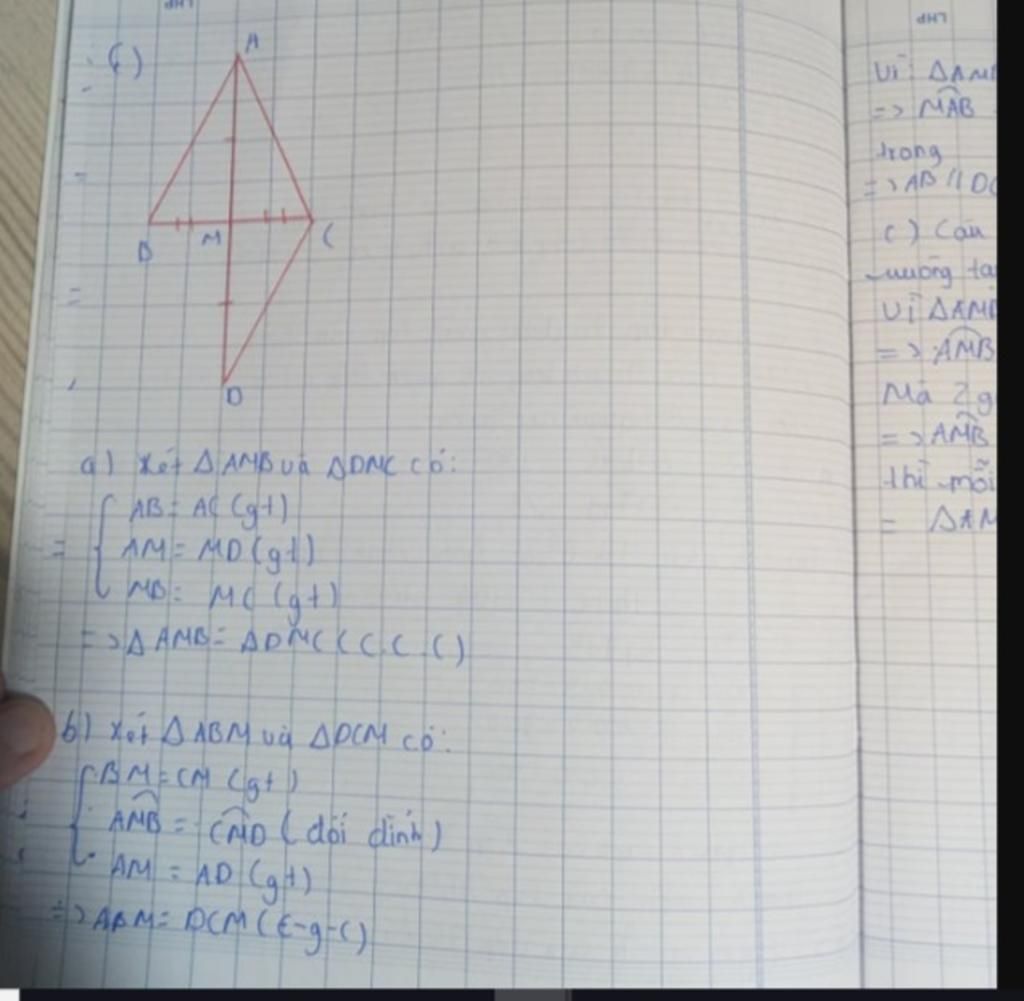 A
B
M
C
D
a) Xét ΔAMB và ΔDMC có:
AB = AC (gt)
= AM = MD (gt)
MB = MC (gt)
=> ΔAMB = ΔDMC (C.C.C)
b) Xét ΔABM và ΔDCM có:
BM = CM (gt)
AMB = CMD (đối đỉnh)
AM = AD (gt)
=> ABM = DCM (C-g-C)
Vì ΔAMB
=> MAB
trong
=> AB // DC
c) Cần
vuông tại
Vì ΔAMB
=> AMB
Mà 2 g
=> AMB
thì mỗi
= ΔAM